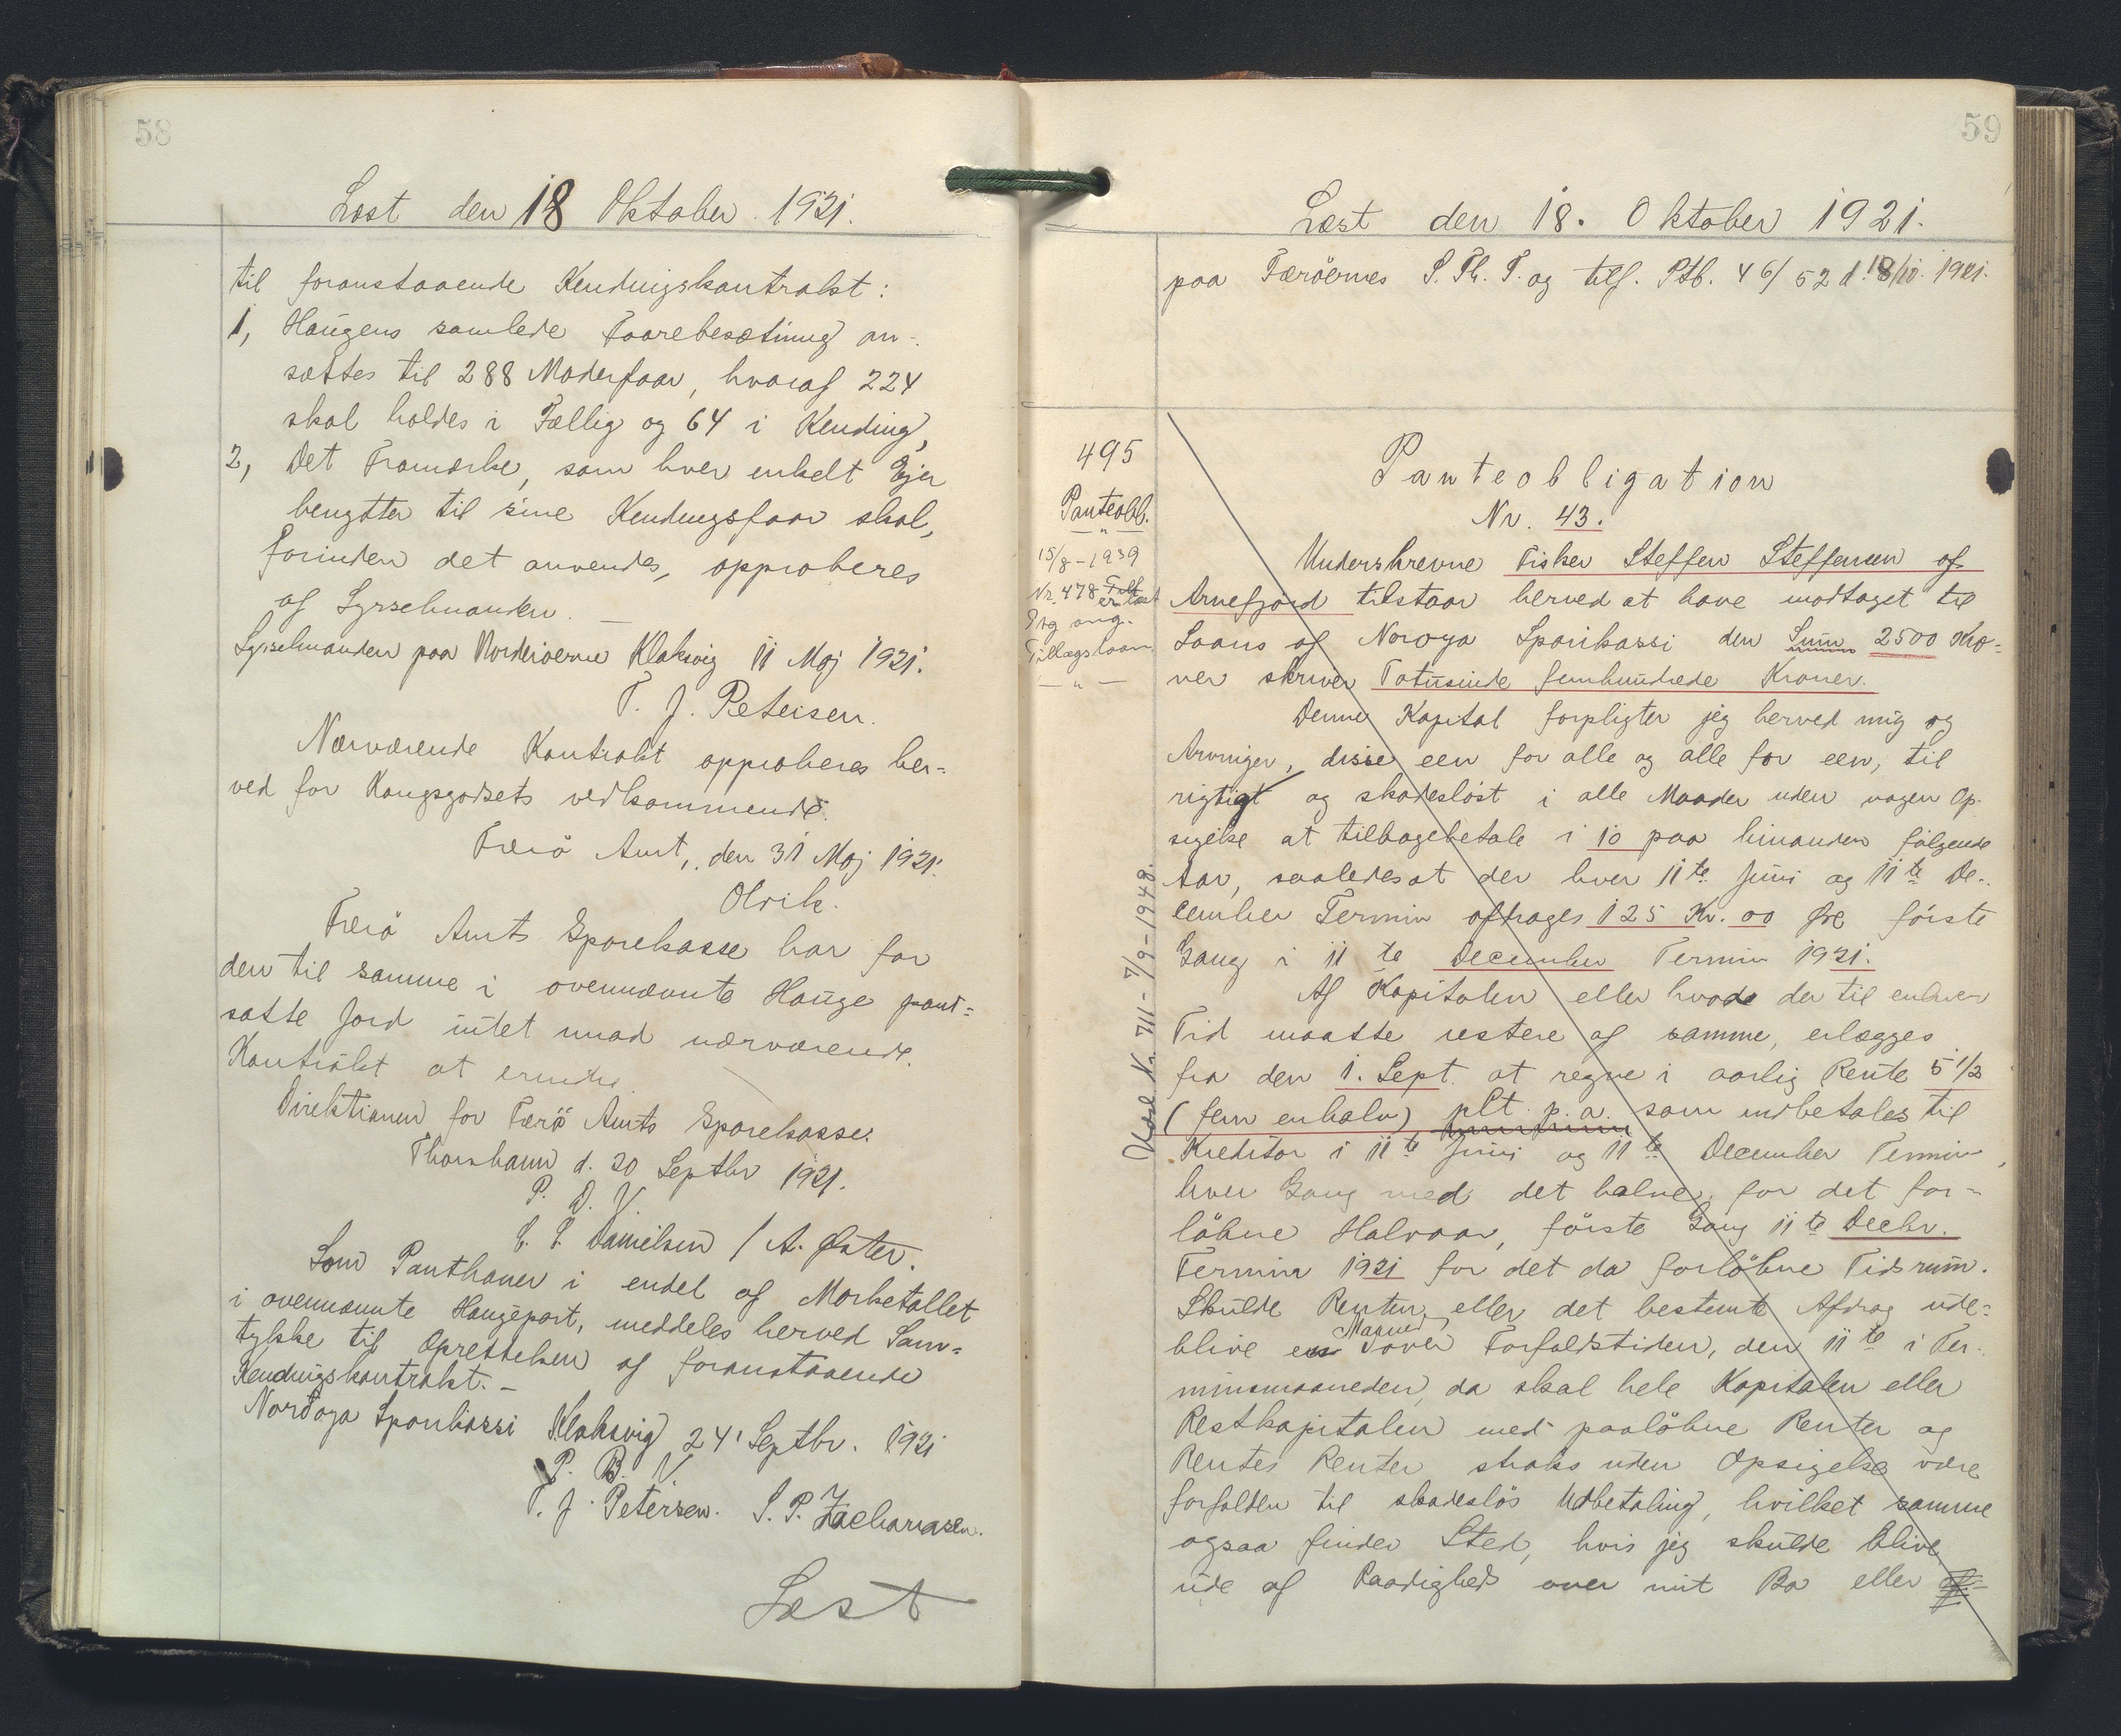 58
Læst den 18 Oktober 1921.
til foranstaaende Kendingskontrakt:
1, Haugens samlede Faarebesætning an-
sættes til 288 Moderfaar, hvoraf 224
skal holdes i Fællig og 64 i Kending,
2, Det Framærke, som hver enkelt Ejer
benytter til sine Kendingsfaar skal,
forinden det anvendes, approberes
af Sysselmanden. —
Sysselmanden paa Norderøerne Klaksvig 11 Maj 1921.
T. J. Petersen.
Nærværende Kontrakt approberes her=
ved for Kongsgodsets vedkommende.
Færö Amt, den 31 Maj 1921.
Olrik.
Færö Amts Sparekasse har for
den til samme i ovennævnte Hauge pant=
satte Jord intet imod nærværende
Kontrakt at erindre.
Direktionen for Færö Amts Sparekasse.
Thorshavn d. 20 Septbr 1921.
P. D. V.
Danielsen / A. Øster.
Som Panthaver i endel af Marketallet
i ovennævnte Haugepart, meddeles herved Sam=
tykke til Oprettelsen af foranstaaende
Kendingskontrakt. —
Nordoya Sparikassi Klaksvig 24' Septbr. 1921
P. B. V.
T. J. Petersen. S. P. Zachariasen.
Læst
59
Læst den 18. Oktober 1921.
paa Færöernes S. Th. T. og tilf. Ptb. 46/52 d. 18/10. 1921.
495
Panteobl.
— " —
15/8 - 1939
Nr. 478
ang.
Tillægslaan
— " —
Nr. 711 - 7/9 - 1948.
Panteobligation
Nr. 43.
Underskrevne Fisker Steffen Steffensen af
Arnefjord tilstaar herved at have modtaget til
Laans af Noroya Sparikassi den Sum 2500 Kro=
ner skriver Totusinde femhundrede Kroner.
Denne Kapital forpligter jeg herved mig og
Arvinger, disse een for alle og alle for een, til
rigtigt og skadesløst i alle Maader uden nogen Op-
sigelse at tilbagebetale i 10 paa hinanden følgende
Aar, saaledes at der hver 11te Juni og 11te De-
cember Termin afdrages 125 Kr. 00 Øre første
Gang i 11te December Termin 1921.
Af Kapitalen eller hvad der til enhver
Tid maatte restere af samme, erlægges
fra den 1. Sept. at regne i aarlig Rente 5 1/2
(fem en halv) pCt. p. a. som indbetales til
Kreditor i 11te Juni og 11te December Termin,
hver Gang med det halve, for det for=
löbne Halvaar, første Gang 11te Decbr.
Termin 1921 for det da forlöbne Tidsrum.
Skulde Renten, eller det bestemte Afdrag ude=
blive en Maaned over Forfaldstiden, den 11te i Ter-
minsmaaneden, da skal hele Kapitalen eller
Restkapitalen med paalöbne Renter og
Rentes Renter straks uden Opsigelse være
forfalden til skadeslös Udbetaling, hvilket samme
ogsaa finder Sted, hvis jeg skulde blive
ude af Raadighed over mit Bo eller